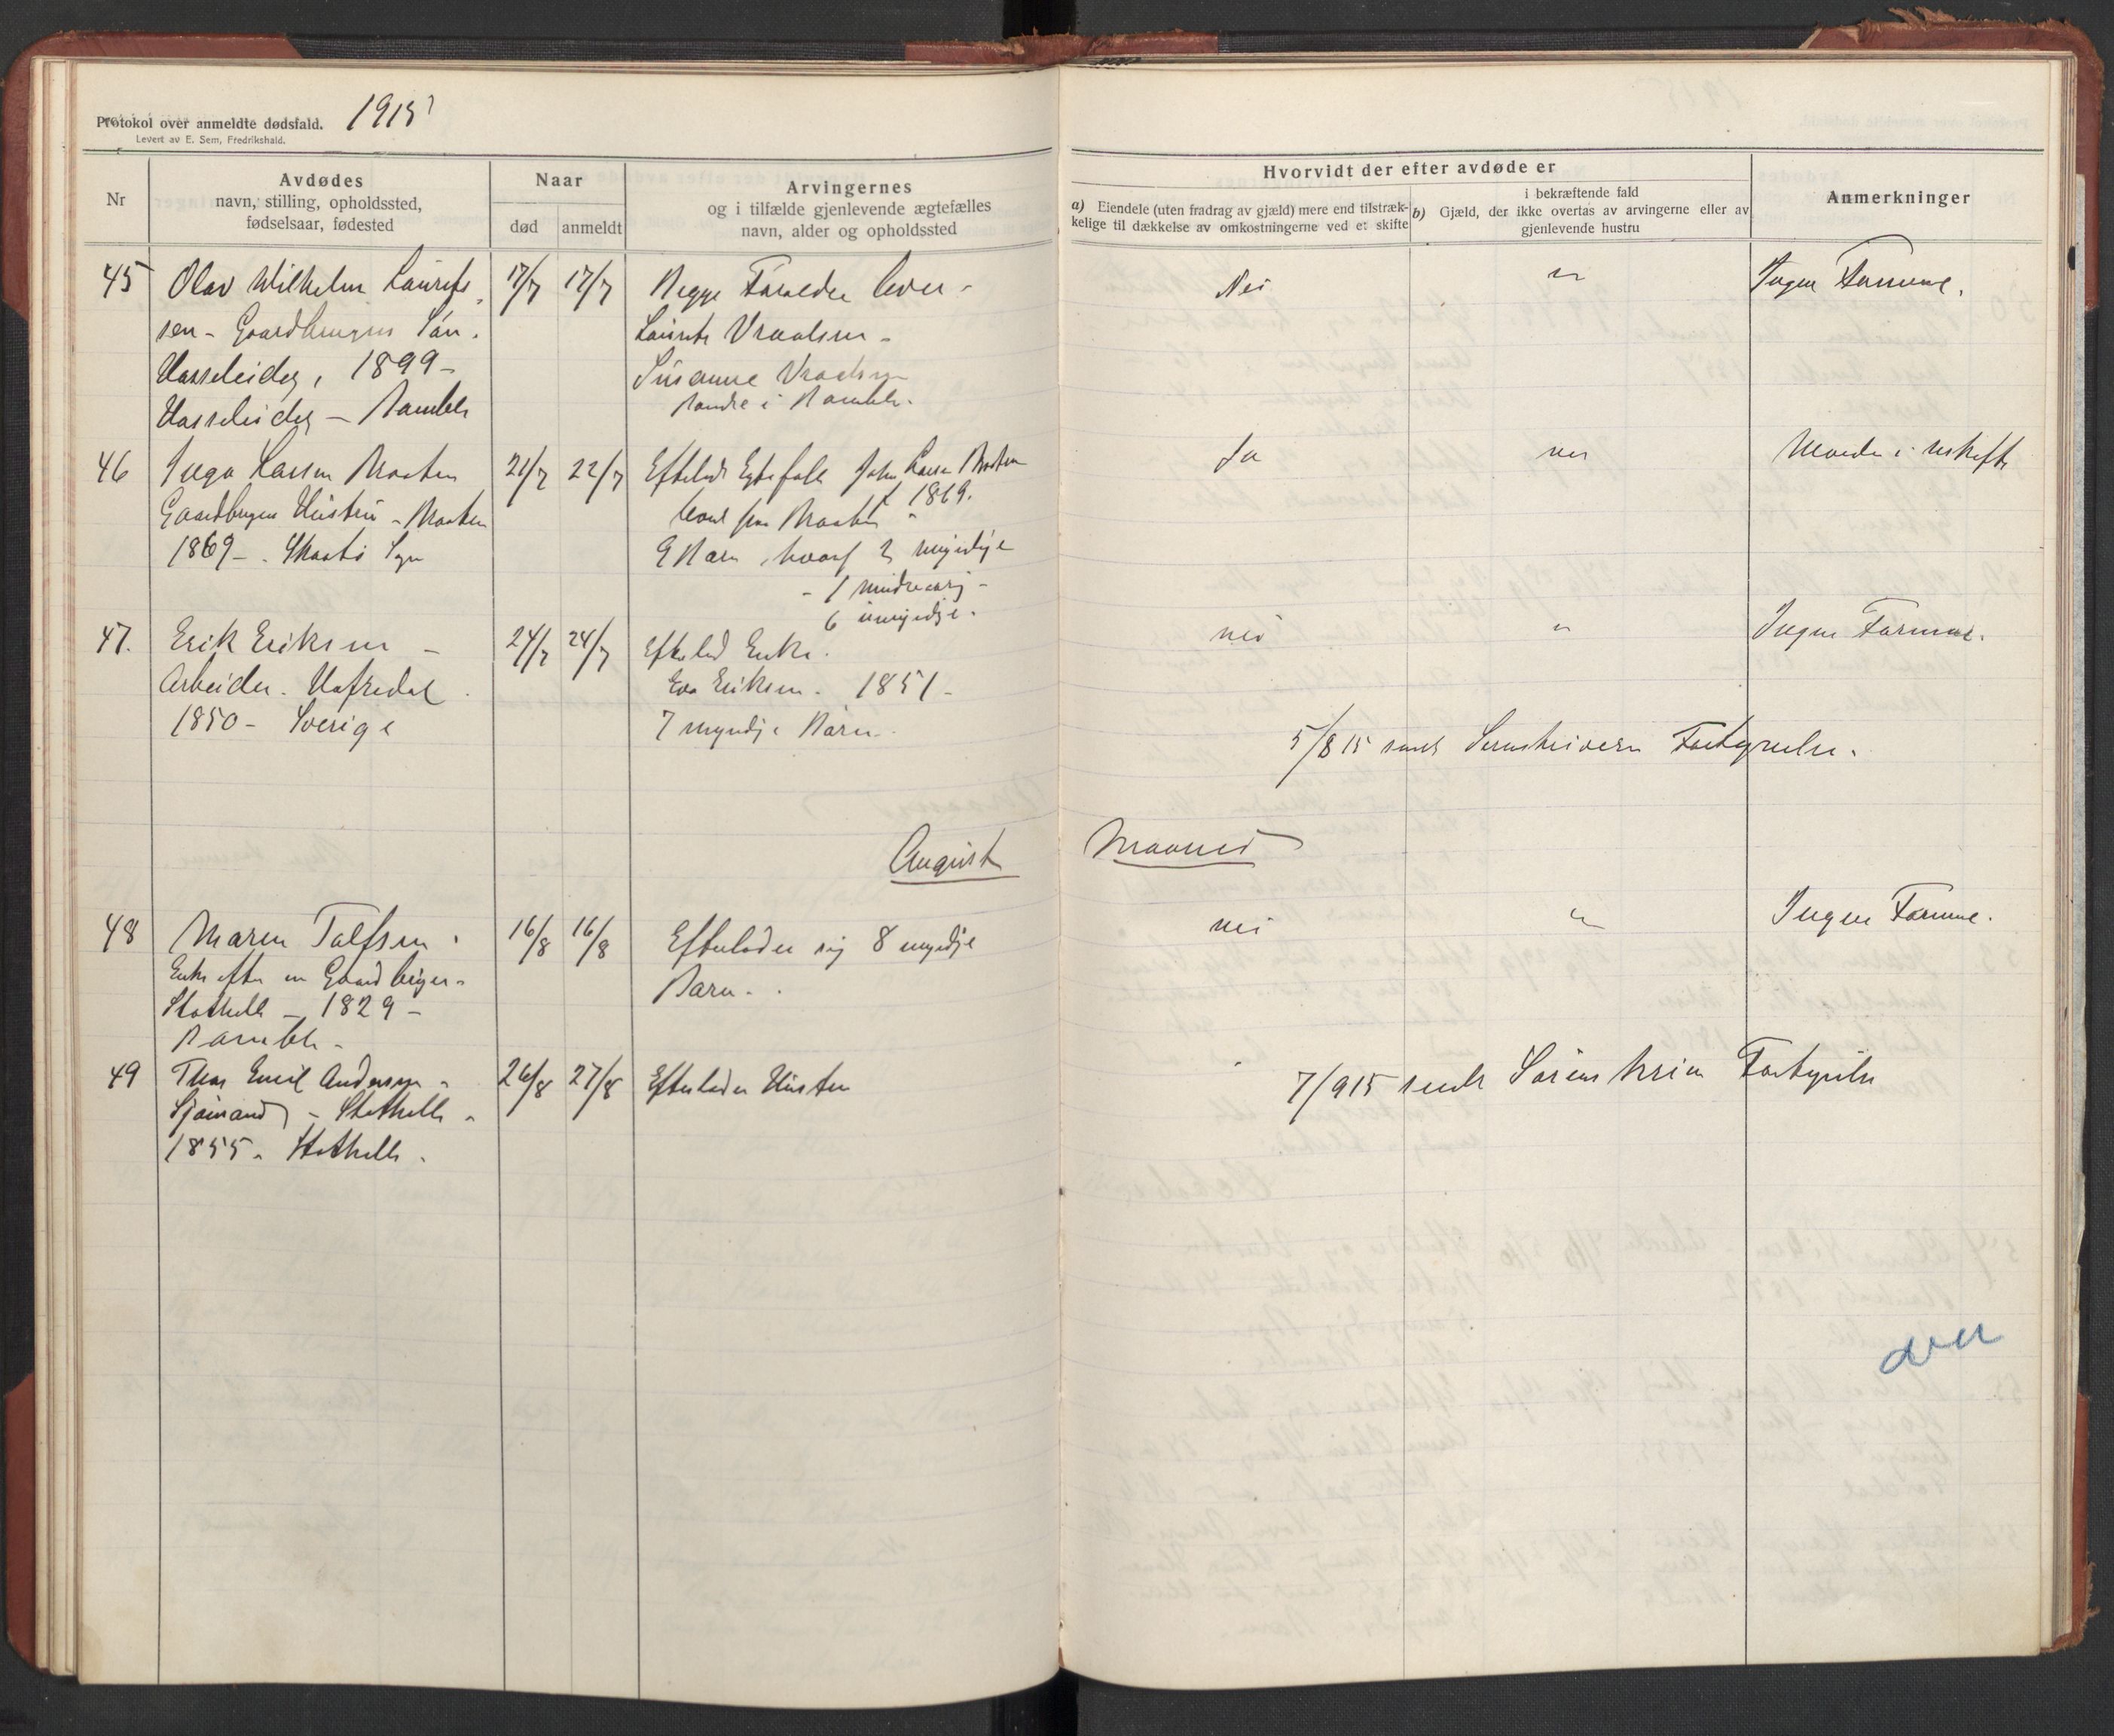 Protokol over anmeldte dødsfald. 1915
Levert av E. Sem, Fredrikshald.
Nr
Avdødes
navn, stilling, opholdssted,
fødselsaar, fødested
Naar
død
anmeldt
Arvingernes
og i tilfælde gjenlevende ægtefælles
navn, alder og opholdssted
Hvorvidt der efter avdøde er
a) Eiendele (uten fradrag av gjæld) mere end tilstræk-
kelige til dækkelse av omkostningerne ved et skifte
i bekræftende fald
b) Gjæld, der ikke overtas av arvingerne eller av
gjenlevende hustru
Anmerkninger
45 Olav Wilhelm Laurits 17/7 17/7 Begge Foreldre lever - Nei " Ingen Formue.
sen - Gaardbrugers Søn. Laurits Vraalsen -
1899 - Susanne Vraalsen
Bamble begge i Bamble.
46 Inga Larsen Moaten 21/7 22/7 Efterlod Egtefelle John Larsen Moaten Ja nei i uskifte
Gaardbruger Hustru - Moaten f. 1869.
1869 - Skaatø Sogn 9 Barn, hvoraf 2 myndige
- 1 mindreaarig -
6 umyndige.
47. Erik Eriksen - 24/7 24/7 Efterlod Enke. nei " Ingen Formue.
Arbeider. Hafredal. Eva Eriksen. 1851 -
1850 - Sverige 7 myndige Barn.
5/8 15 sendt Sorenskriveren Fortegnelse.
August Maaned
48 Maren Tolfsen. 16/8 16/8 Efterlader sig 8 myndige nei " Ingen Formue.
Enke efter en Gaardbruger - Barn.
Stathelle - 1829 -
Bamble -
49 Thor Emil Andersen - 26/8 27/8 Efterlader Hustru
Sjømand - Stathelle -
1855. Stathelle.
7/9 15 sendt Sorenskriver Fortegnelse